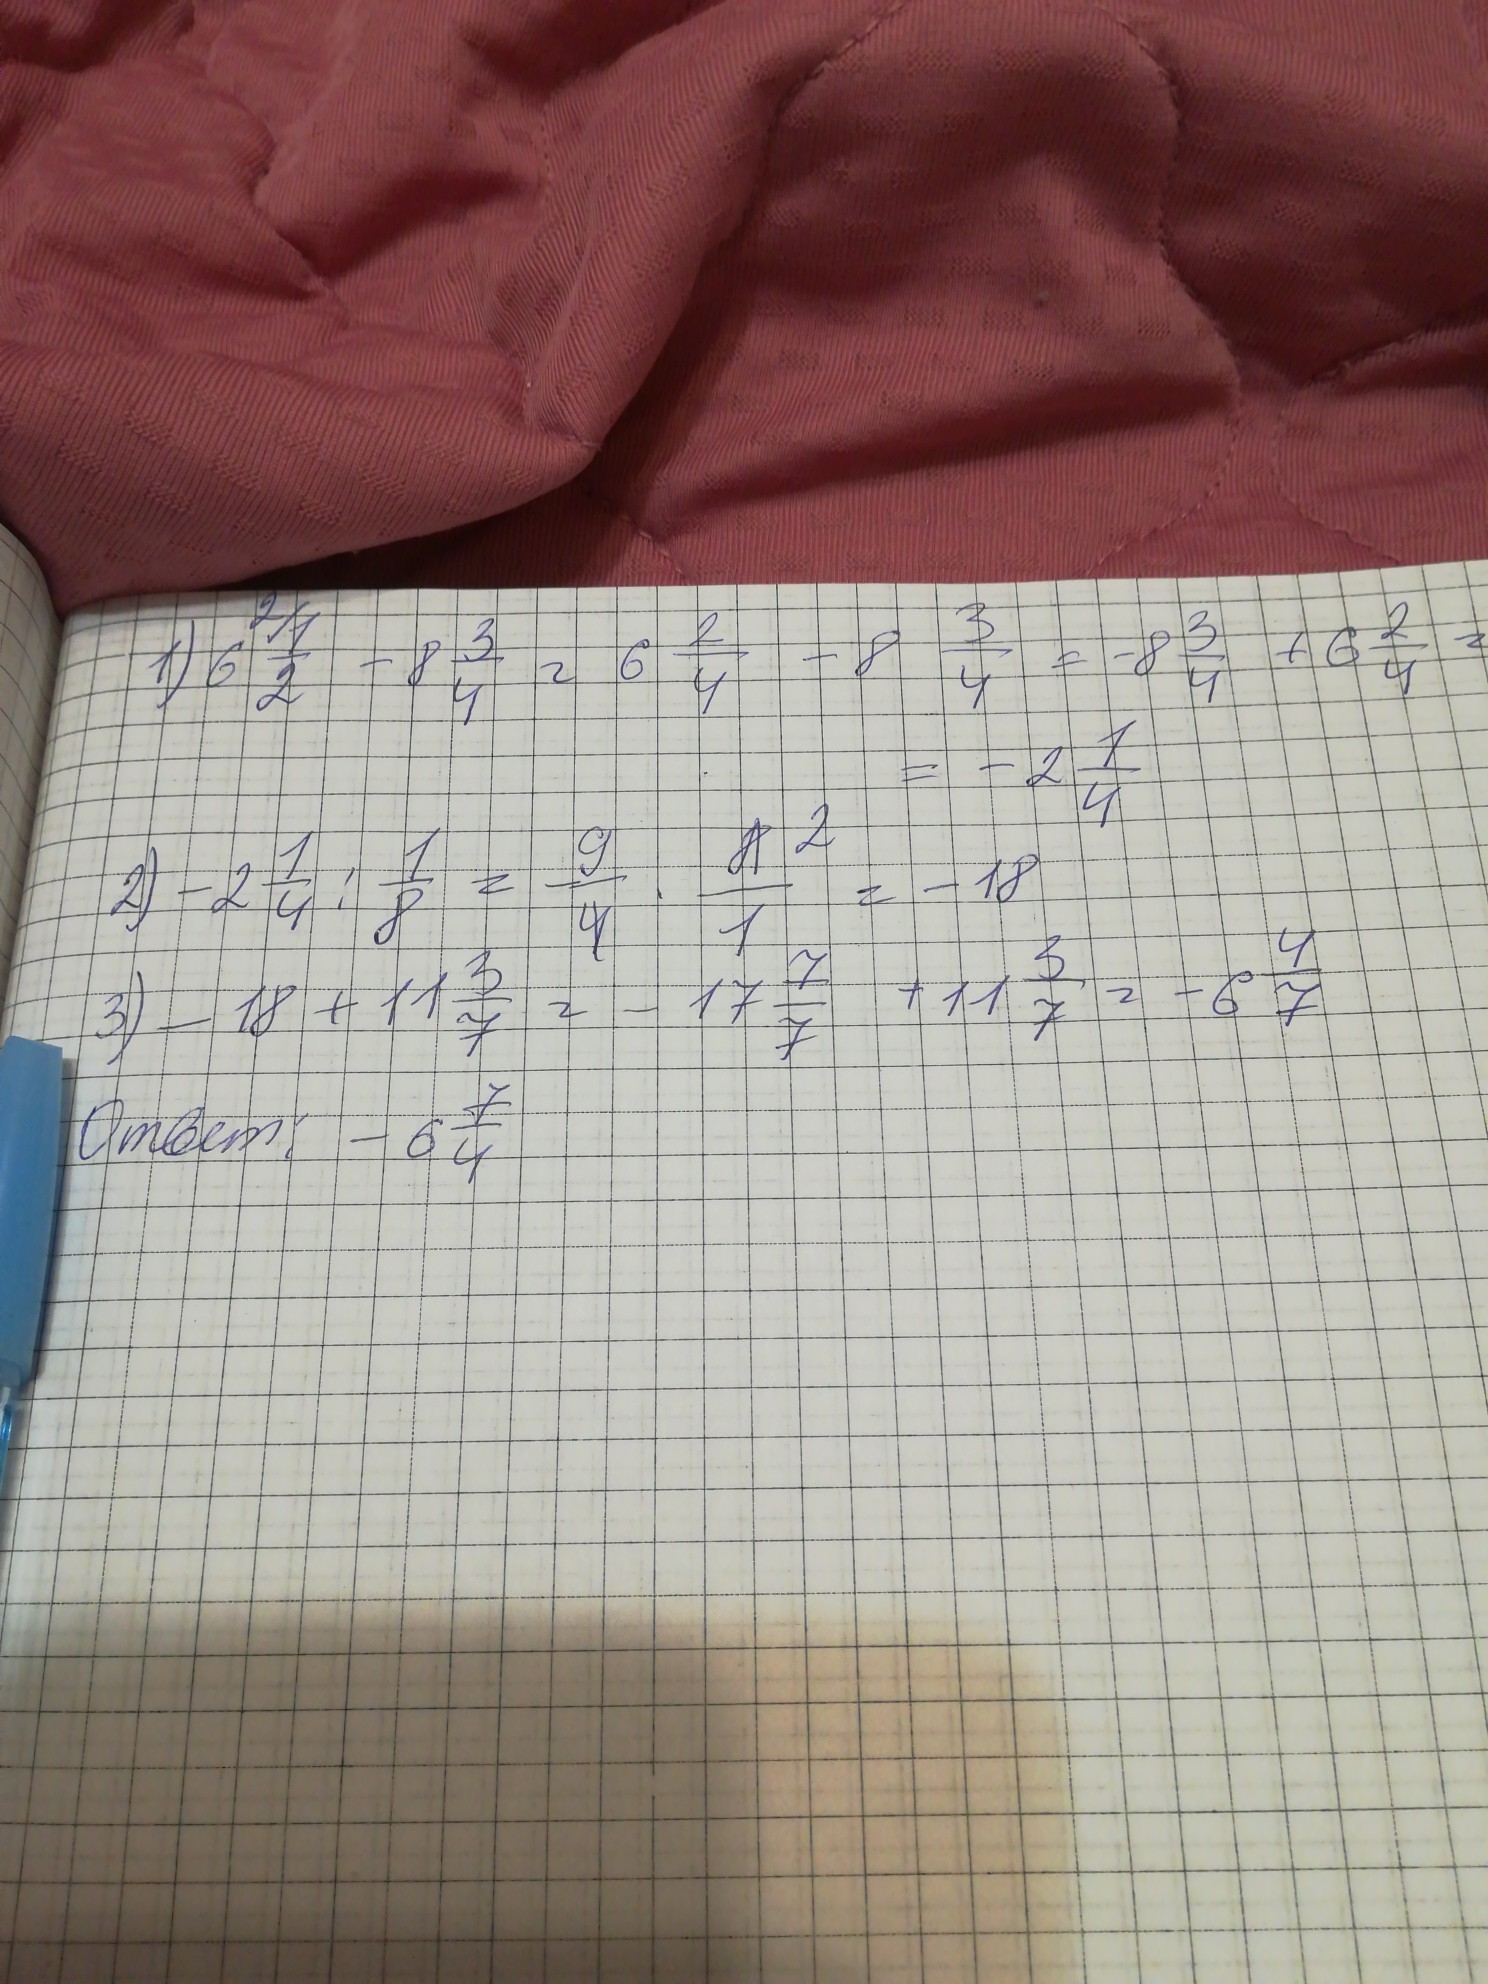 1) 6 2/1/2 - 8 3/4 = 6 2/4 - 8 3/4 = -8 3/4 + 6 2/4 =
= - 2 1/4
2) - 2 1/4 : 1/8 = 9/4 · 8/1 2 = - 18
3) - 18 + 11 3/7 = - 17 7/7 + 11 3/7 = - 6 4/7
Ответ: - 6 7/4